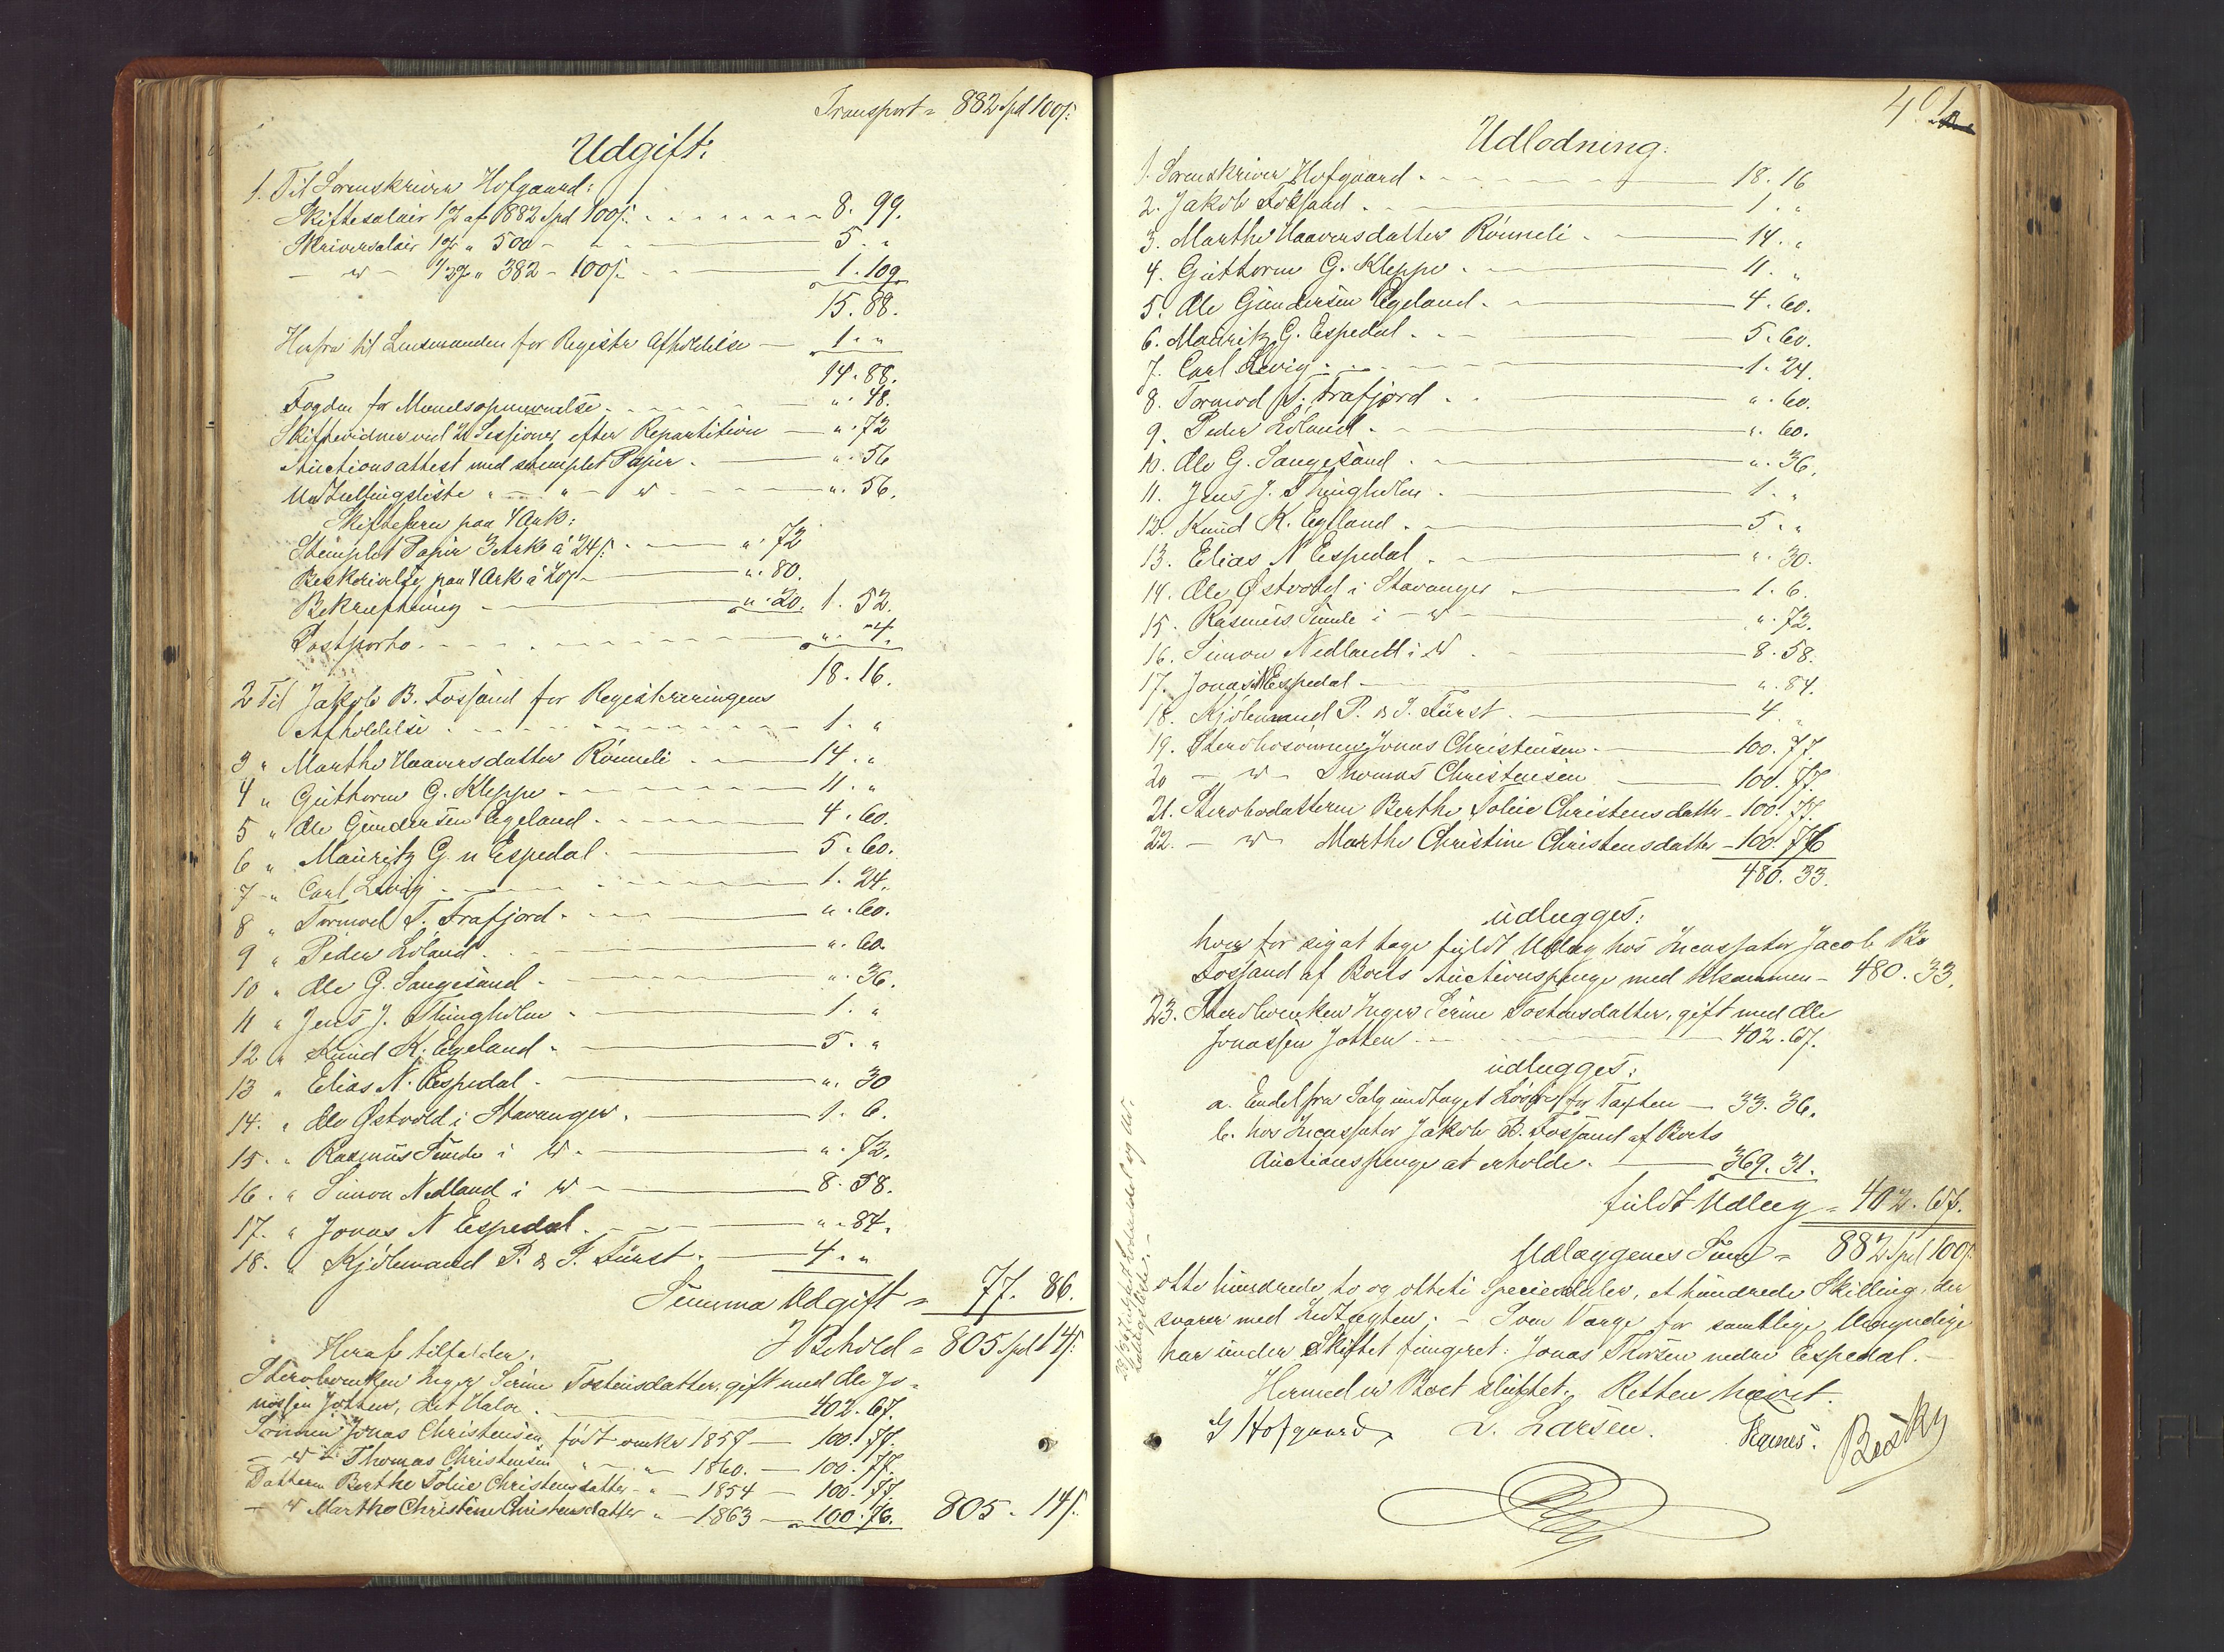 Transport = 882 Spd 100 s.
Udgift:
1. Til Sorenskriver Hofgaard:
Skiftesalair 1% af 882 Spd 100 s. 8. 99.
Skriversalair 1% " 500 - 5. "
— " — 1/2% " 382 - 100 s. 1. 109
15. 88.
Herfra til Lensmanden for Registr Afholdelse — 1. "
14. 88.
Fogden for Mandsopnævnelse. ". 48.
Skiftevidner ved 2 Sessioner efter Repartition — ". 72
Auctionsattest med stemplet Papir. ". 56
Udtællingsliste " — " — " ". 56.
Skiftebrev paa 4 Ark:
Stemplet Papir 3 Ark a 24 s. ". 72
Beskrivelse paa 4 Ark a 20 s ". 80.
Bekræftning ". 20. 1. 52.
Postporto. ". 4.
18. 16.
2 Til Jakob B. Fossand for Registreringens
Afholdelse 1. "
3 " Marthe Haaversdatter Rønneli 14. "
4 " Guthorm G. Kleppe 11. "
5 " Ole Gundersen Egeland. 4. 60.
6 " Mauritz G. n Espedal. 5. 60.
7 " Carl Levig 1. 24.
8 " Tormod T. Frafjord. ". 60.
9 " Peder Loland. ". 60.
10 " Ole G. Sangesand. ". 36.
11 " Jens J. Thingholm 1. "
12 " Knud K. Egeland. 5. "
13 " Elias N. Espedal. ". 30
14. " Ole Østvold i Stavanger. 1. 6.
15. " Rasmus Sunde i " ". 72.
16. " Simon Nedland i " 8. 58.
17. " Jonas N Espedal. ". 84.
18. " Kjøbmand P. & J. Fürst. 4. "
Summa Udgift = 77. 86.
I Behold = 805 Spd 14 s.
Heraf tilfalder:
Stervboenken Inger Serine Tostensdatter, gift med Ole Jo-
nassen Jotten, det Halve. 402. 67.
Sønnen Jonas Christensen, født omkr 1857 — 100. 77.
— " — Thomas Christensen " — " 1860. — 100. 77.
Datteren Berthe Toline Christensdatter — " — 1854 — 100. 77
— " Marthe Christine Christensdatter " — 1863 — 100. 76. 805. 14 s.
401
Udlodning:
1. Sorenskriver Hofgaard. 18. 16
2. Jakob Fossand. 1. "
3. Marthe Haaversdatter Rønneli. 14. "
4. Guthorm G. Kleppe. 11. "
5. Ole Gundersen Egeland. 4. 60.
6. Mauritz G. Espedal. 5. 60.
7. Carl Levig. 1. 24.
8. Tormod T. Frafjord ". 60.
9. Peder Loland. ". 60.
10. Ole G. Sangesand. ". 36.
11. Jens J. Thingholm. 1. "
12. Knud K. Egeland. 5. "
13. Elias N Espedal. ". 30.
14. Ole Østvold i Stavanger 1. 6.
15. Rasmus Sunde i — " — ". 72.
16. Simon Nedland i " 8. 58.
17. Jonas N Espedal ". 84.
18. Kjøbmand P. & J. Fürst. 4. "
19. Stervbosønnen Jonas Christensen. 100. 77.
20 — " — Thomas Christensen 100. 77.
21. Stervbodatteren Berthe Toline Christensdatter - 100. 77.
22. — " — Marthe Christine Christensdatter - 100. 76
480. 33.
udlægges:
hver for sig at tage fuldt Udlæg hos Incassator Jacob B.
Fossand af Boets Auctionspenge med tilsammen — 480. 33.
23. Stervboenken Inger Serine Tostensdatter, gift med Ole
Jonassen Jotten 402. 67.
udlægges:
a. Endel fra Salg undtaget Løsøre for Taxten — 33. 36.
b. hos Incassator Jakob B. Fossand af Boets
Auctionspenge at erholde. 369. 31.
fuldt Udlæg = 402. 67.
Udlæggenes Sum = 882 Spd 100 s.
otte hundrede to og otteti Speciedaler, et hundrede Skilling, der
svarer med Indtægten. — Som Værge for samtlige Umyndige
har under Skiftet fungeret: Jonas Thorsen nedre Espedal. —
Hermed er Boet sluttet. Retten hævet.
G Hofgaard L. Larsen.